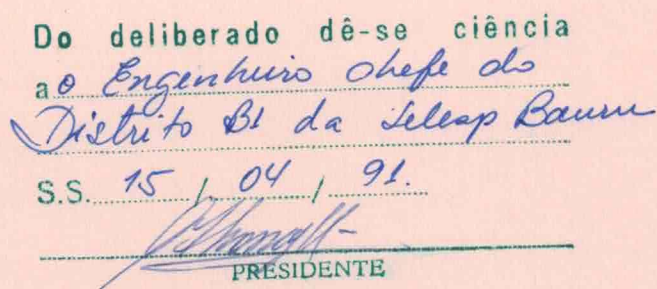 Do deliberado dê-se ciência
ao Engenheiro Chefe do
Distrito B1 da Telesp Bauru
S.S. 15 / 04 / 91.
PRESIDENTE